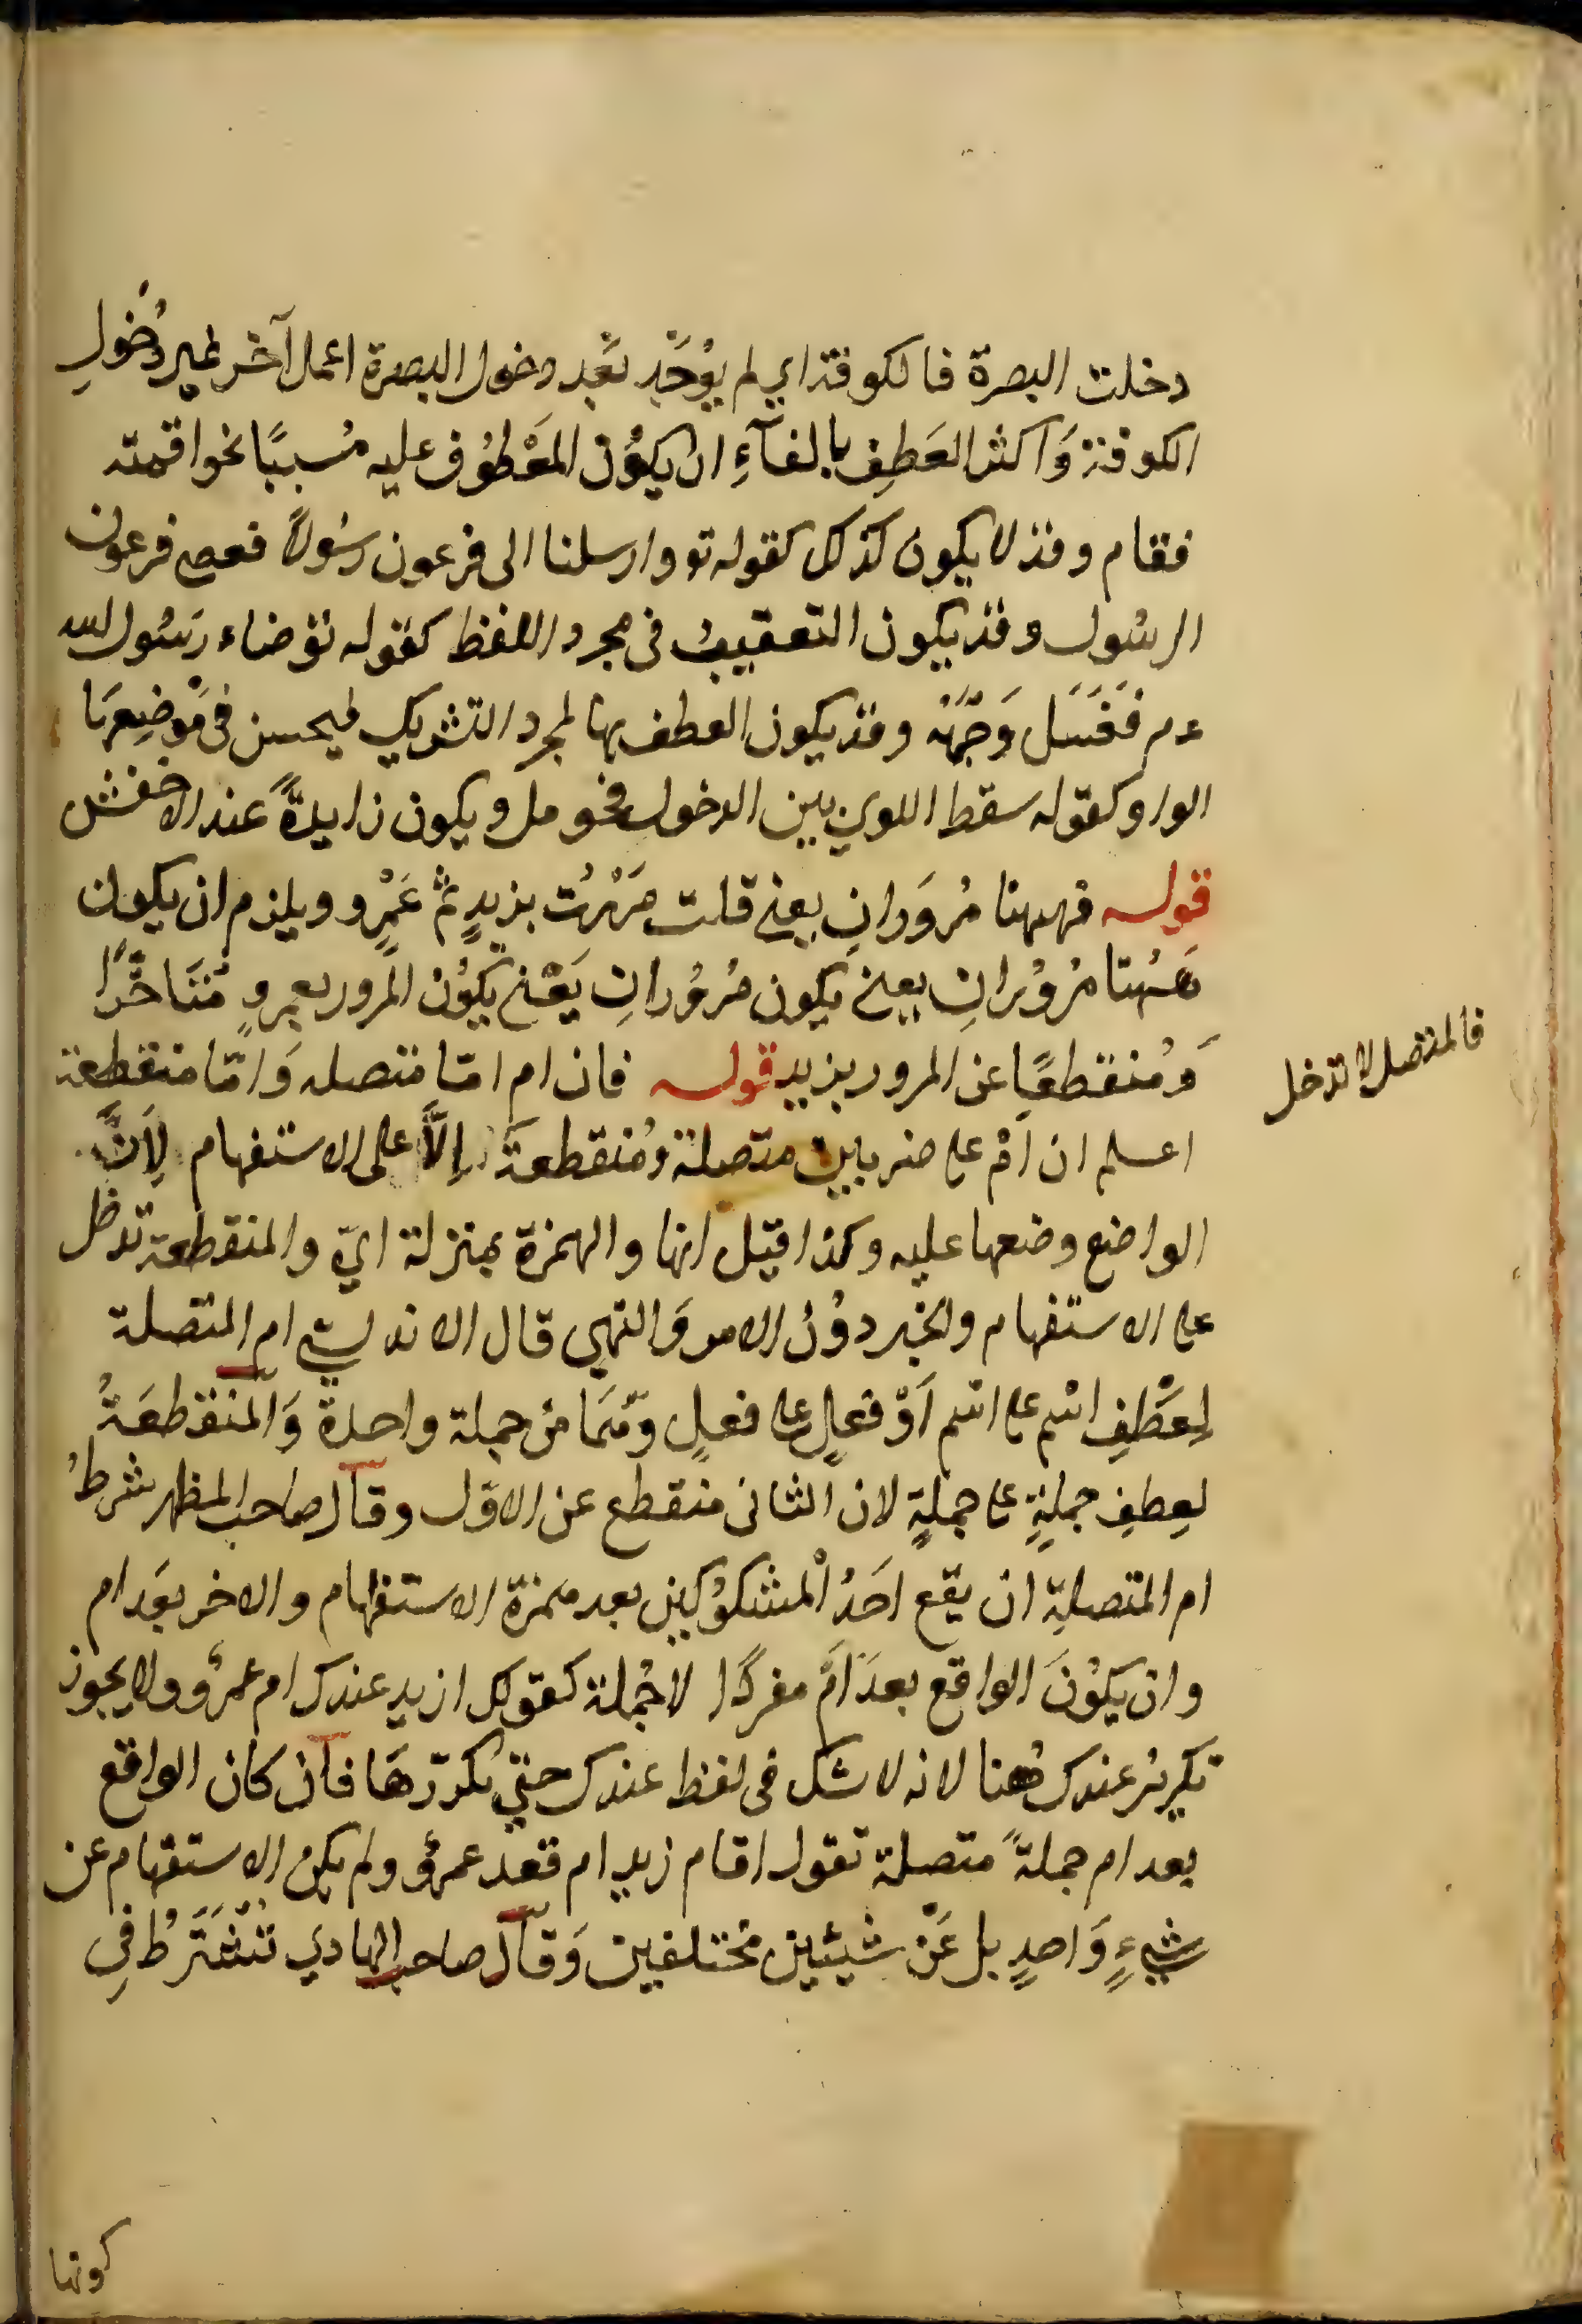 دخلت البصرة فالكوفة اي لم يوْجَد بَعْد دخول البصرة اعمال آخر غير دُخولِ
الكوفة وَاكثر العَطفِ بالفآءِ ان يكوُن المَعْطوُف عليه مُسببًا نحو اقمته
فقام وقد لا يكون كذلك كقوله تو وارسلنا الى فرعون رسُولاً فعصى فرعون
الرسُول وقد يكون التعقيبُ فى مجرد اللفظ كقوله توضاء رسَوُل الله
ءم فَغَسَل وَجْهَهُ وقد يكون العطف بها لمجرد التشريك ليحسن فى مَوْضِعِهَا
الواو كقوله سقط اللوي بين الدخول فحومل ويكون زايدةً عند الاخفش
قوله فههنا مُروَرانِ يعني قلت مَرَرْتُ بزيدٍ ثم عَمْرٍو ويلزم ان يكون
هَهُنا مُروُرانِ يعني يكون مُروُرانِ يَعْني يكوُن المرور بعمروٍ مُتَاخّرًا
وَمُنقطعًا عن المرور بزيد قوله فان ام امّا متصله وَامّا منقطعة
فالمتصل لا تدخل
اعلم ان اَمْ على ضربين متصلة ومُنقطعة اِلاَّ على الاستفهام لِاَنَّ
الواضع وضعها عليه وكذا قيل انها والهمزة بمنزلة ايّ والمنقطعة تدخل
على الاستفهام والخبر دوُن الامر وَالنهى قال الاندلسي ام المتصلة
لِعَطْفِ اسْم على اسْم اَوْ فعلٍ على فعلٍ وَهُمَا من جملة واحدة وَالمنقطعَةُ
لعِطفِ جملةٍ على جملةٍ لان الثانى منقطع عن الاوّل وقال صاحب المظهر شرطُ
ام المتصلةِ ان يقع احَدُ المشكوُكين بعد همزة الاستفهام والاخر بعَد ام
وان يكوُنَ الواقع بعدَ اَمْ مفردًا لا جُملة كقولك ازيد عندك ام عمرٌو ولا يجوز
تكريرُ عندك هُهنا لانه لا شك فى لفظ عندك حتي تكررّهَا فان كان الواقع
بعد ام جملةً متصلة تقول اقام زيد ام قعد عمرٌو ولم يكن الاستفهام عن
شيءٍ وَاحدٍ بل عَنْ شيئين مختلفين وَقال صاحب الهادي تُشْتَرَطُ فِي
كونها